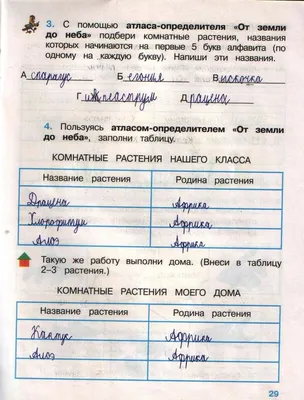 3. С помощью атласа-определителя «От земли
до неба» подбери комнатные растения, названия
которых начинаются на первые 5 букв алфавита (по
одному на каждую букву). Напиши эти названия.
Аспарагус Бегония Выскочка
Гиппеаструм Драцены
4. Пользуясь атласом-определителем «От земли
до неба», заполни таблицу.
КОМНАТНЫЕ РАСТЕНИЯ НАШЕГО КЛАССА
Название растения Родина растения
Драцена Африка
Хлорофитум Африка
Алоэ Африка
Такую же работу выполни дома. (Внеси в таблицу
2–3 растения.)
КОМНАТНЫЕ РАСТЕНИЯ МОЕГО ДОМА
Название растения Родина растения
Кактус Африка
Алоэ Африка
29